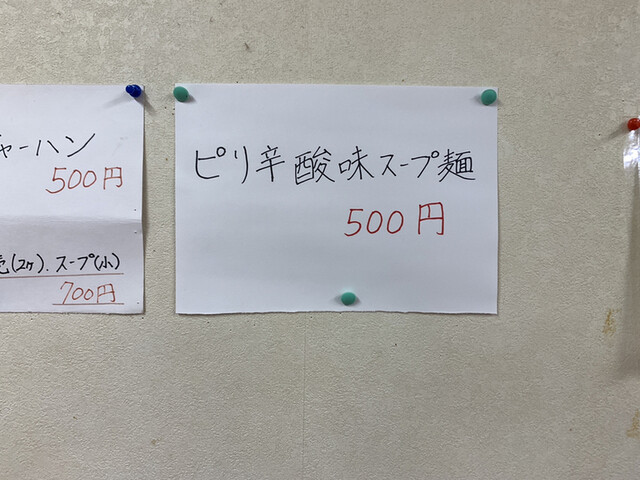 ャーハン
500円
(2ヶ).スープ(小)
700円
ピリ辛酸味スープ麺
500円